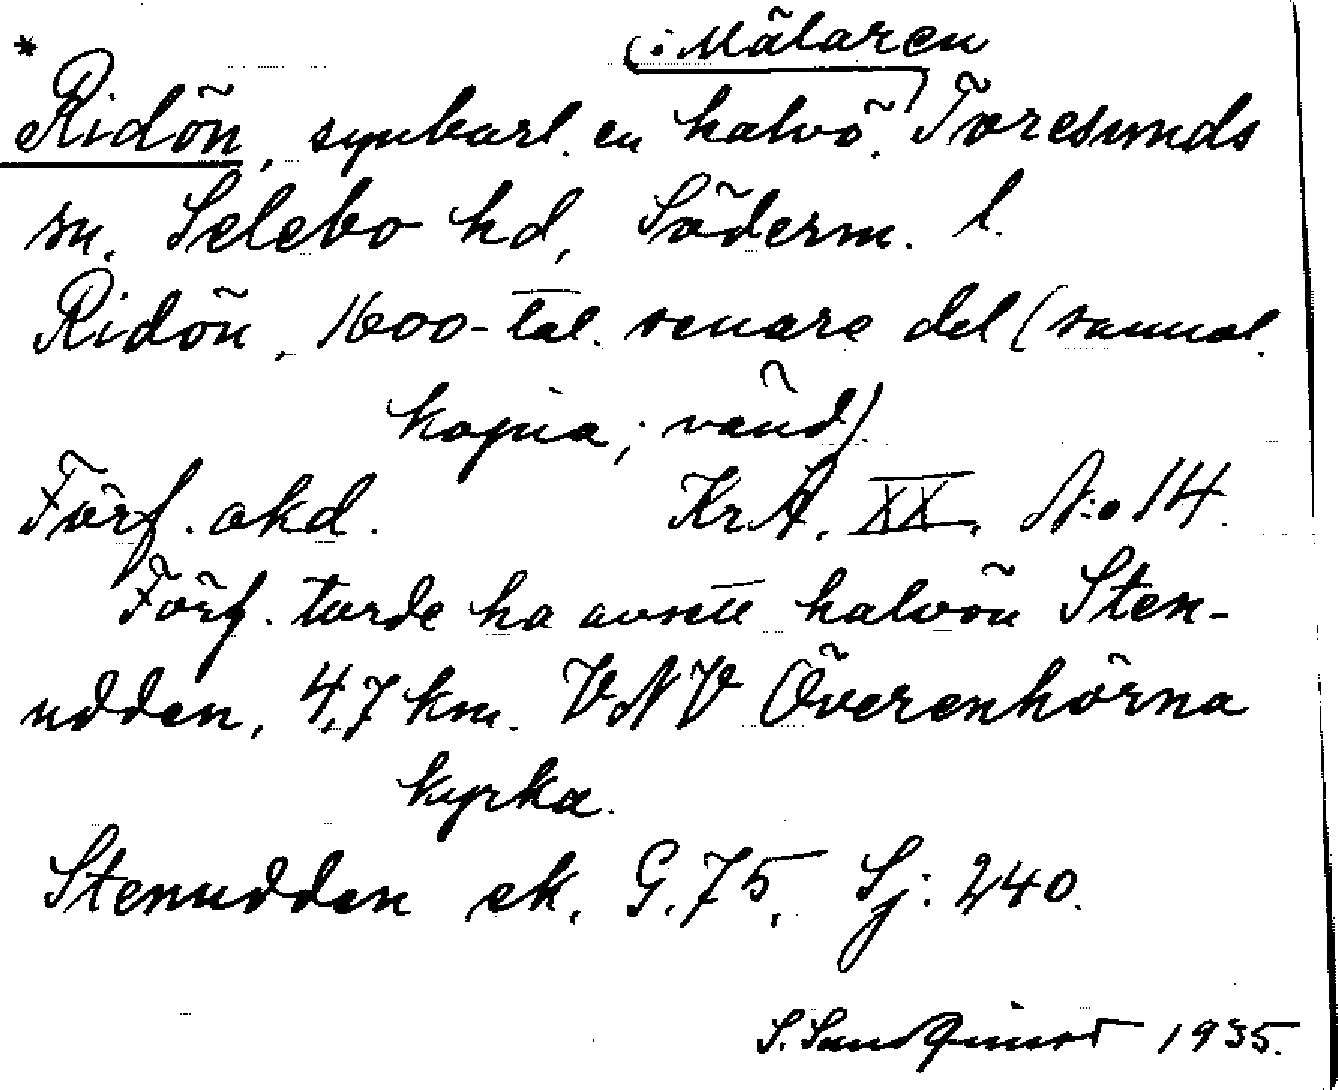 * i Mälaren
Ridön, synbarl. en halvö. Toresunds
sn. Selebo hd, Söderm. l.
Ridön, 1600-tal. senare del (sannol.
kopia; vänd)
Förf. okd. KrA. XX, N:o 14.
Förf. torde ha avsett halvön Sten-
udden, 4,7 km. VNV Överenhörna
kyrka.
Stenudden ek. G. 75, Sj: 240.
S. Sundqvist 1935.